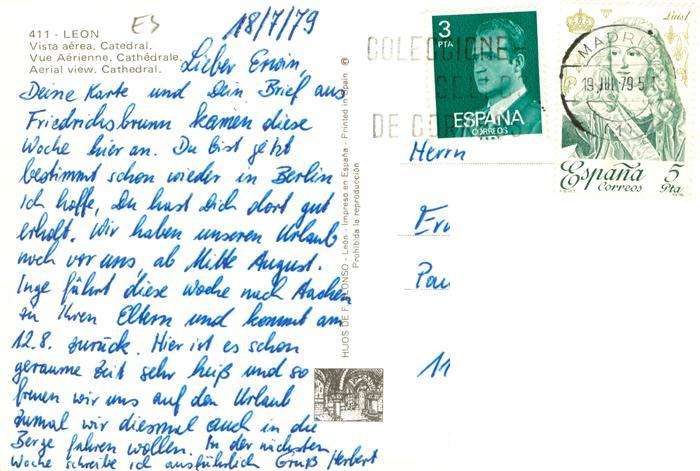 411 - LEON
Vista aérea. Catedral.
Vue Aérienne. Cathédrale.
Aerial view. Cathedral.
18/7/79
Lieber Erwin,
Deine Karte und Dein Brief aus
Friedrichsbrunn kamen diese
Woche hier an. Du bist jetzt
bestimmt schon wieder in Berlin
ich hoffe, Du hast Dich dort gut
erholt. Wir haben unseren Urlaub
noch vor uns, ab Mitte August.
Inge fährt diese Woche nach Aachen
zu Ihren Eltern und kommt am
12.8. zurück. Hier ist es schon
geraume Zeit sehr heiß und so
freuen wir uns auf den Urlaub
zumal wir diesmal auch in die
Berge fahren wollen. In der nächsten
Woche schreibe ich ausführlich Gruß Herbert
HIJOS DE F. ALONSO - León - Impreso en España - Printed in Spain
Prohibida la reproducción
COLECCIONE
DE
3
PTA
ESPAÑA
CORREOS
Luis I
España
Correos
5
Pta
MADRID
19 JUL 79-5
Herrn
Pau
11